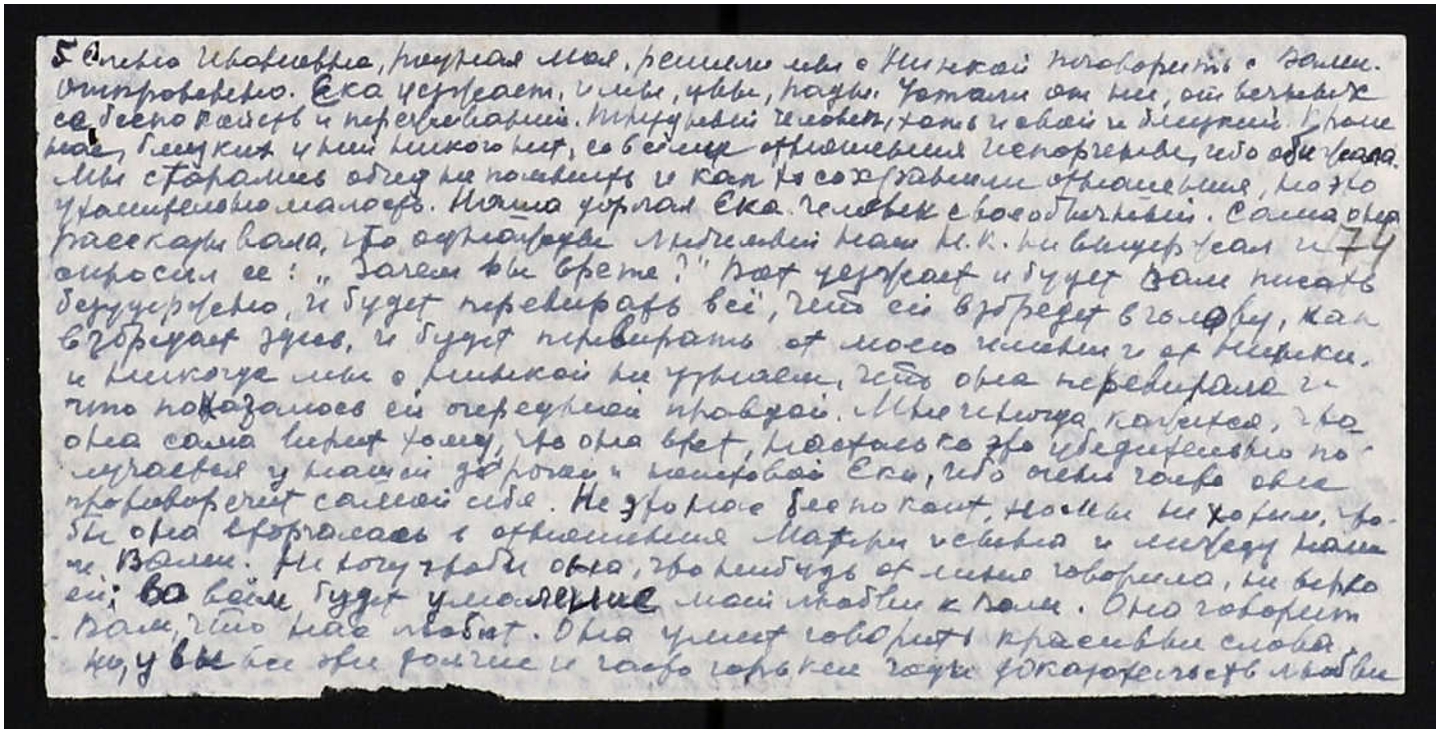 5 Елена Ивановна, родная моя, решили мы с Нинкой поговорить с Вами.
Откровенно. Ека уезжает, и мы, увы, рады. Устали от неё, от вечных
её беспокойств и переживаний. Трудный человек, хоть и свой и близкий. Кроме
нас, близких у неё никого нет, со всеми отношения испорчены, ибо обижала.
Мы старались обид не помнить и как-то сохранили отношения, но это
утомительно малость. Наша дорогая Ека человек своеобычный. Сама она
рассказывала, что однажды любимый наш Н.К. не выдержал и 74
спросил ее: "Зачем вы врете?" Вот уезжает и будет Вам писать
безудержно, и будет перевирать всё, что ей взбредет в голову, как
взбредает здесь, и будет перевирать от моего имени и от Нинки.
и никогда мы с Нинкой не узнаем, что она переврала и
что показалось ей очередной правдой. Мне иногда кажется, что
она сама верит тому, что она врет, настолько это убедительно по-
лучается у нашей дорогой и непутевой Еки, ибо очень часто она
противоречит самой себе. Не это нас беспокоит, но мы не хотим, что-
бы она вторгалась в отношения Матери и сына и между нами
и Вами. Не хочу чтобы она, что нибудь от меня говорила, не верьте
ей; во всём будет умаление моей любви к Вам. Она говорит
Вам, что нас любит. Она умеет говорить красивые слова,
но, увы все эти долгие и часто горькие годы доказательств любви